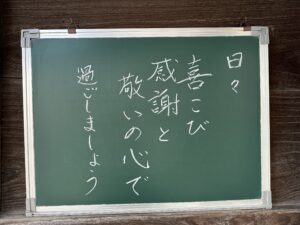 日々
喜こび
感謝と
敬いの心で
過ごしましょう